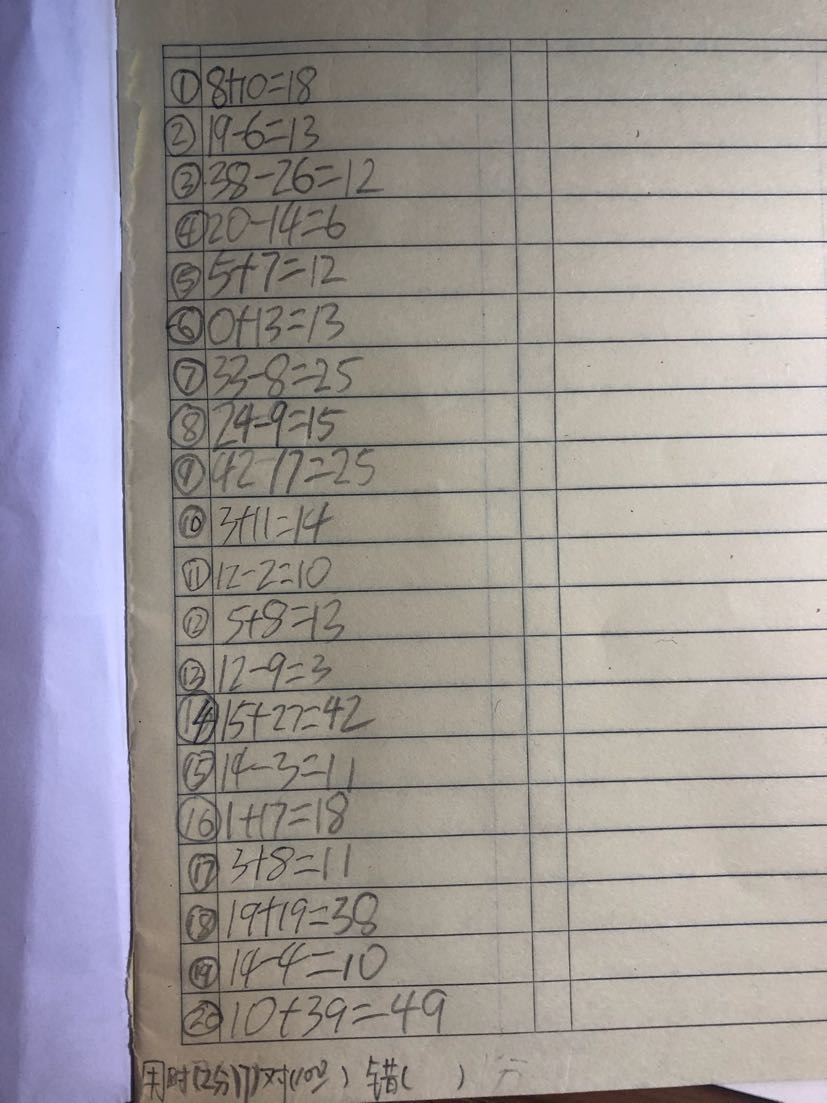 ①8+10=18
②19-6=13
③38-26=12
④20-14=6
⑤5+7=12
⑥0+13=13
⑦33-8=25
⑧24-9=15
⑨42-17=25
⑩3+11=14
⑪12-2=10
⑫5+8=13
⑬12-9=3
⑭15+27=42
⑮14-3=11
⑯1+17=18
⑰3+8=11
⑱19+19=38
⑲14-4=10
⑳10+39=49
用时(2分17)对(100) 错( )